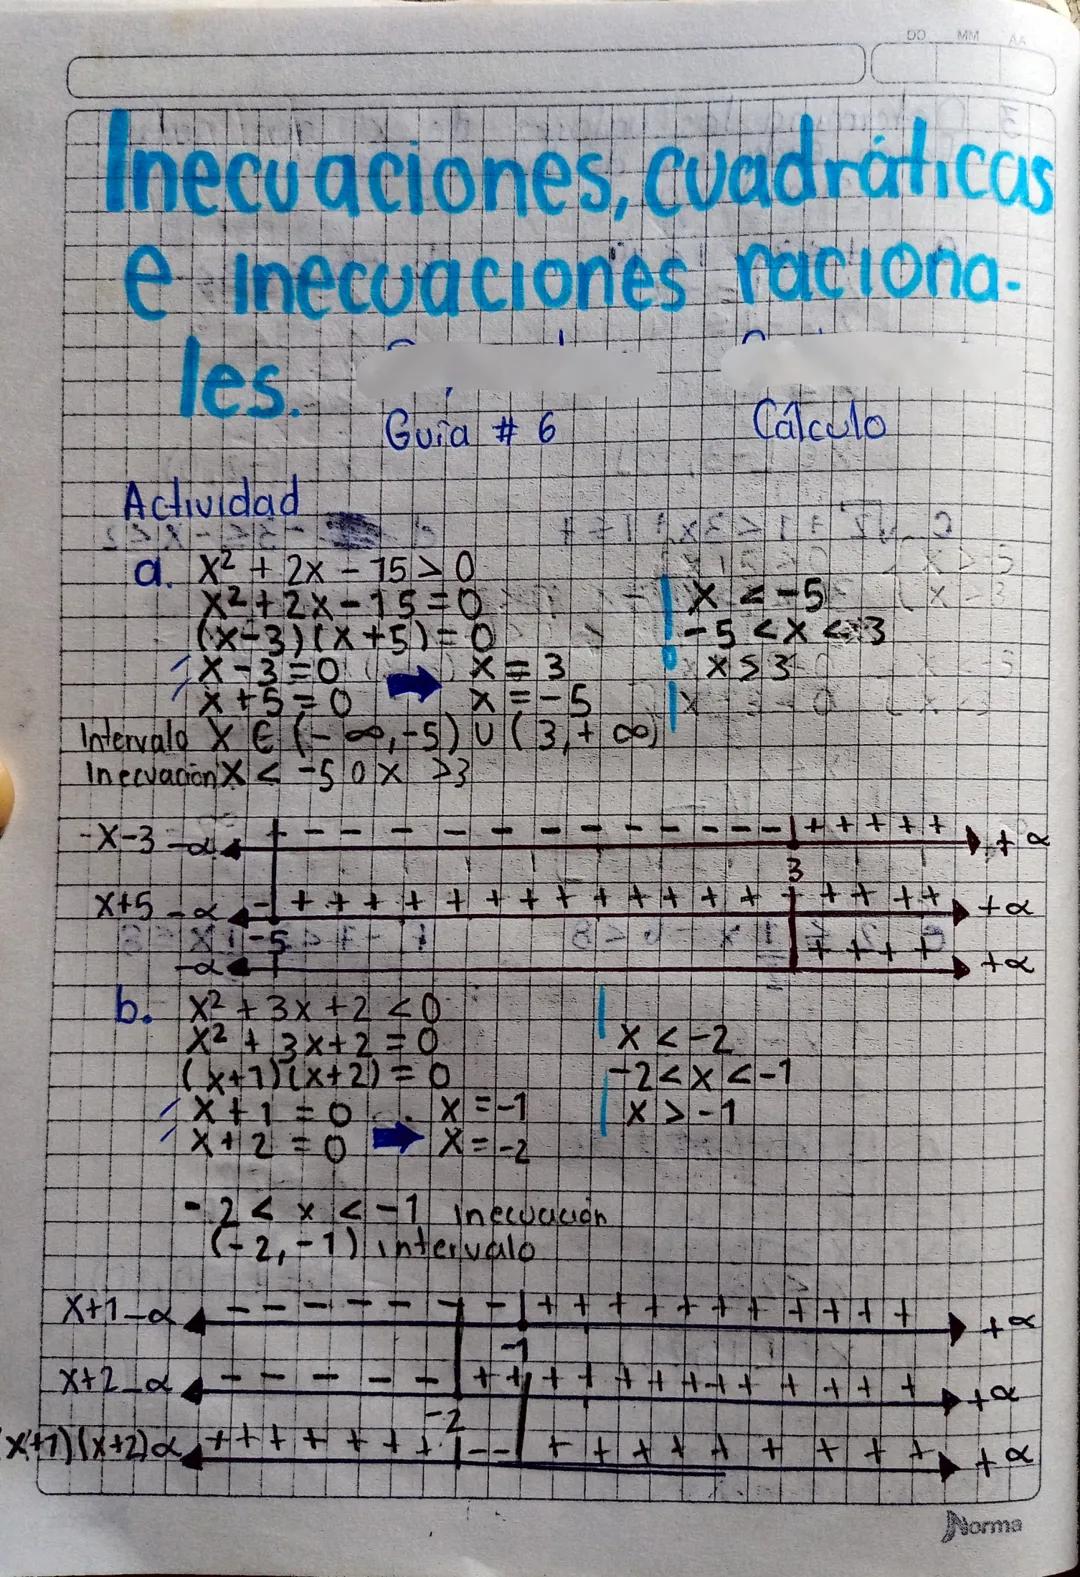 DD MM AA
Inecuaciones, cuadráticas
e inecuaciones raciona-
les.
Guía # 6 Cálculo
Actividad
a. x² + 2x - 15 > 0
x² + 2x - 15 = 0
(x-3)(x+5) = 0
x - 3 = 0 x = 3
x + 5 = 0 x = -5
x < -5
-5 < x < 3
x > 3
Intervalo x ∈ (-∞, -5) ∪ (3, +∞)
Inecuación x < -5 o x > 3
-x-3 -α + - - - - - - - - - - - - + + + + + + α
3
x+5 -α - + + + + + + + + + + + + + + + + + + + α
-5
-α + + + + + α
b. x² + 3x + 2 < 0
x² + 3x + 2 = 0
(x+1)(x+2) = 0
x + 1 = 0 x = -1
x + 2 = 0 x = -2
x < -2
-2 < x < -1
x > -1
-2 < x < -1 inecuación
(-2, -1) intervalo
x+1 -α - - - - - - - + + + + + + + + + + + + α
-1
x+2 -α - - - - - + + + + + + + + + + + + + α
-2
x+1)(x+2) α + + + + + + + - - + + + + + + + + + + α
Norma